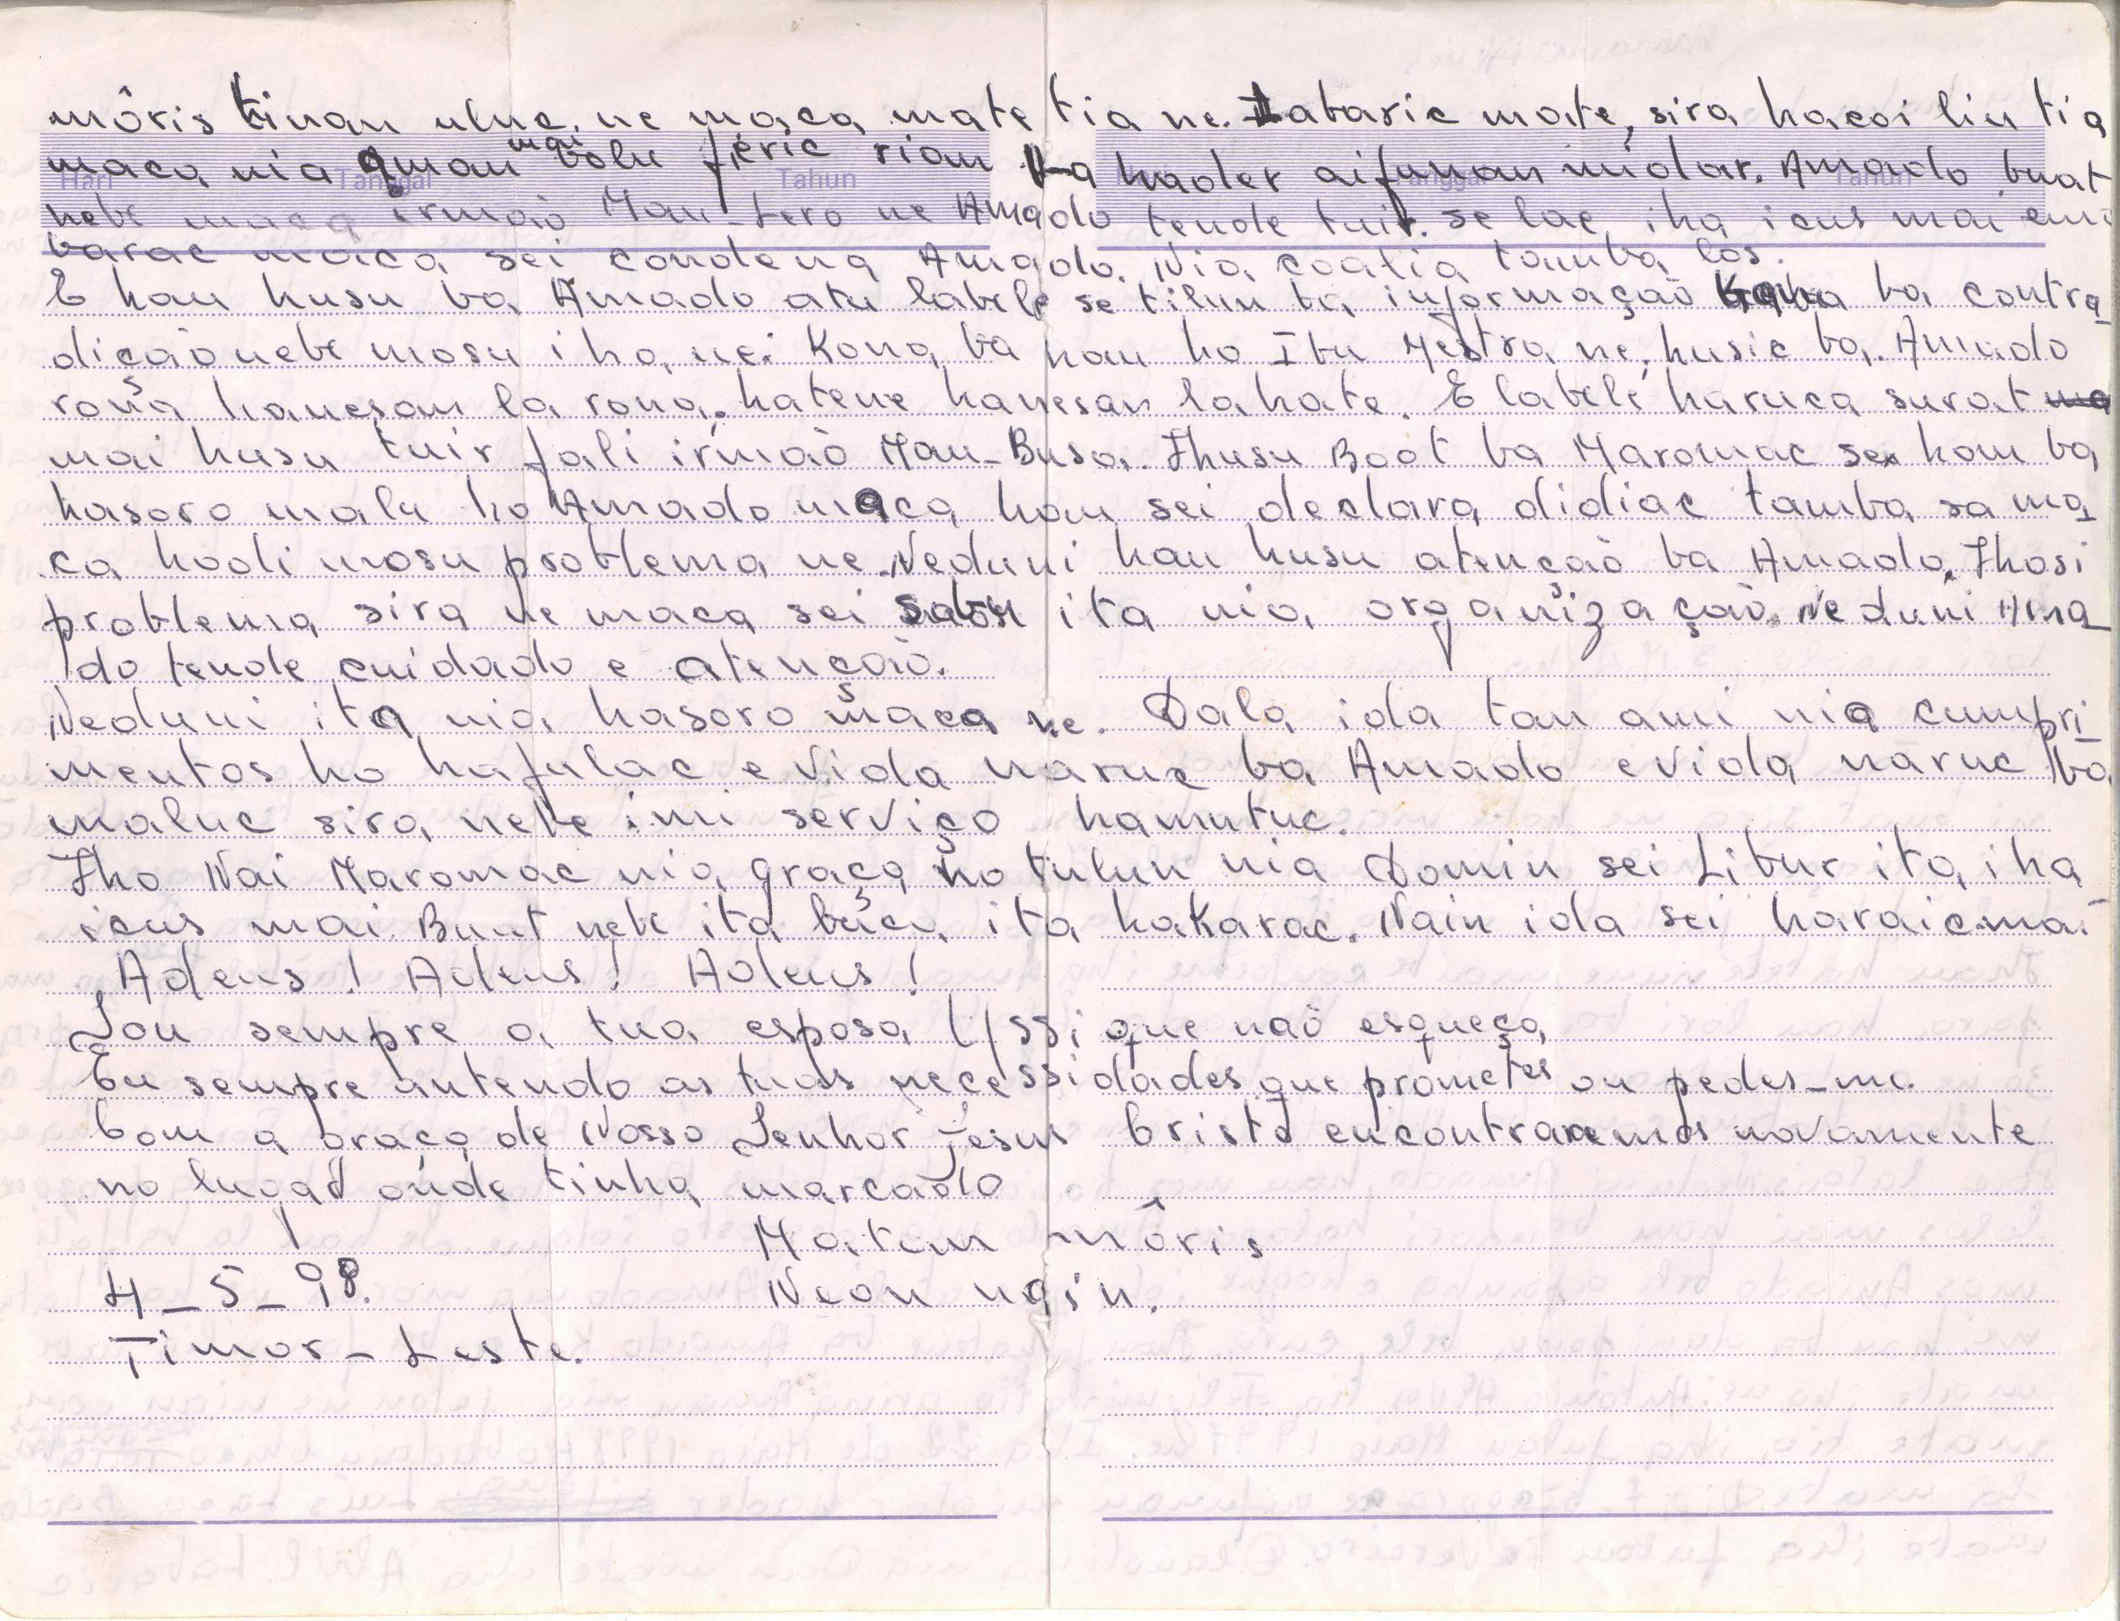 môris tinan uluc, ne maca mate tia ne. Labaric mate, sira hacoi liu tia
maca nia aman mai bolu feric rian ba hader aifunan midar. Amado buat
Hari Tanggal Tahun
nebe maca irmaò Mau-Lero ne Amado tende tuir. se lae, iha icus mai emi
barac maca sei condena Amado. Nia coalia tamba los.
E hau husu ba Amado atu labele se tilun ba informaçaò ba contra
dicaò nebe mosu iha nei Kona ba hau ho Ibu Mestra ne, husic ba. Amado
rona hanesan la rona. hatene hanesan lahate. E labele haruca surat
mai husu tuir fali irmaò Mau-Busa. Ihusu Boot ba Maromac se hau ba
hasoro malu ho Amado maca hau sei declara didiac tamba sa ma
ca hodi mosu problema ne. Neduni hau husu atencaò ba Amado. Ihosi
problema sira ne maca sei ita nia organizaçaò. Neduni Ama
do tende cuidado e atencaò.
Neduni ita nia hasoro maca ne. Dala ida tan ami nia cumpri
mentos ho hafulac e vida naruc ba Amado e vida naruc ba
maluc sira nebe imi serviço hamutuc.
Iho Nai Maromac nia graça ho tulun nia Domin sei Libur ita iha
icus mai. Buat nebe ita buca ita hakarac. Nain ida sei haraic mai
Adeus! Adeus! Adeus!
Sou sempre a tua esposa Ussi que naò esqueça
Eu sempre antendo as tuas necessidades que prometes ou pedes-me.
Com a graça de Nosso Senhor Jesus Cristo encontraremos novamente
no lugar onde tinha marcado
Matan môris
4-5-98. Neon nain.
Timor-Leste.